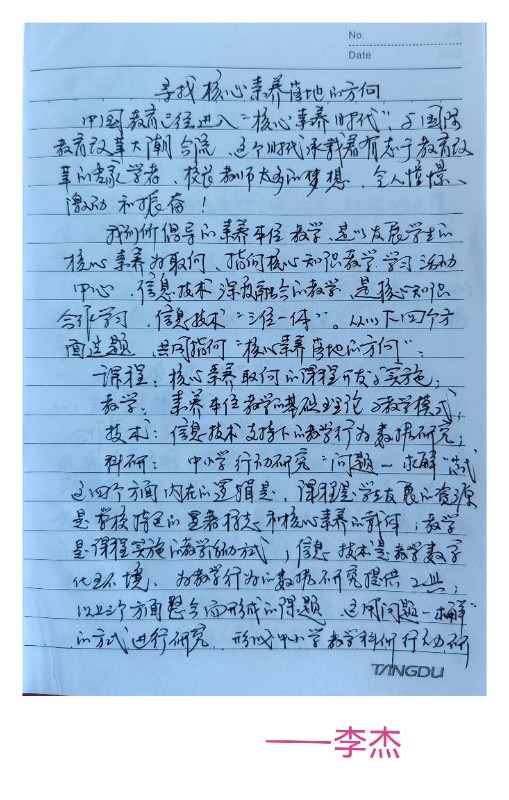 No.
Date
寻找核心素养落地的方向
中国教育已经进入“核心素养时代”，与国际
教育改革大潮合流，这个时代承载着有志于教育改
革的专家学者、校长教师太多的梦想，令人憧憬、
激动和振奋！
我们所倡导的素养本位教学，是以发展学生的
核心素养为取向，指向核心知识教学，学习活动
中心，信息技术深度融合的教学，是核心知识
合作学习，信息技术“三位一体”。从以下四个方
面选题，共同指向“核心素养落地的方向”：
课程：核心素养取向的课程开发与实施；
教学：素养本位教学的基础理论与教学模式；
技术：信息技术支持下的教学行为数据研究；
科研：中小学行动研究“问题—求解”范式
这四个方面内在的逻辑是，课程是学生发展的资源
是学校特色的显著标志和核心素养的载体；教学
是课程实施的教学活动方式；信息技术是教学数字
化环境，为教学行为的数据研究提供工具；
以上三个方面整合而形成的课题，运用“问题—求解”
的方式进行研究，形成中小学教学科研行动研
TANGDU
——李杰